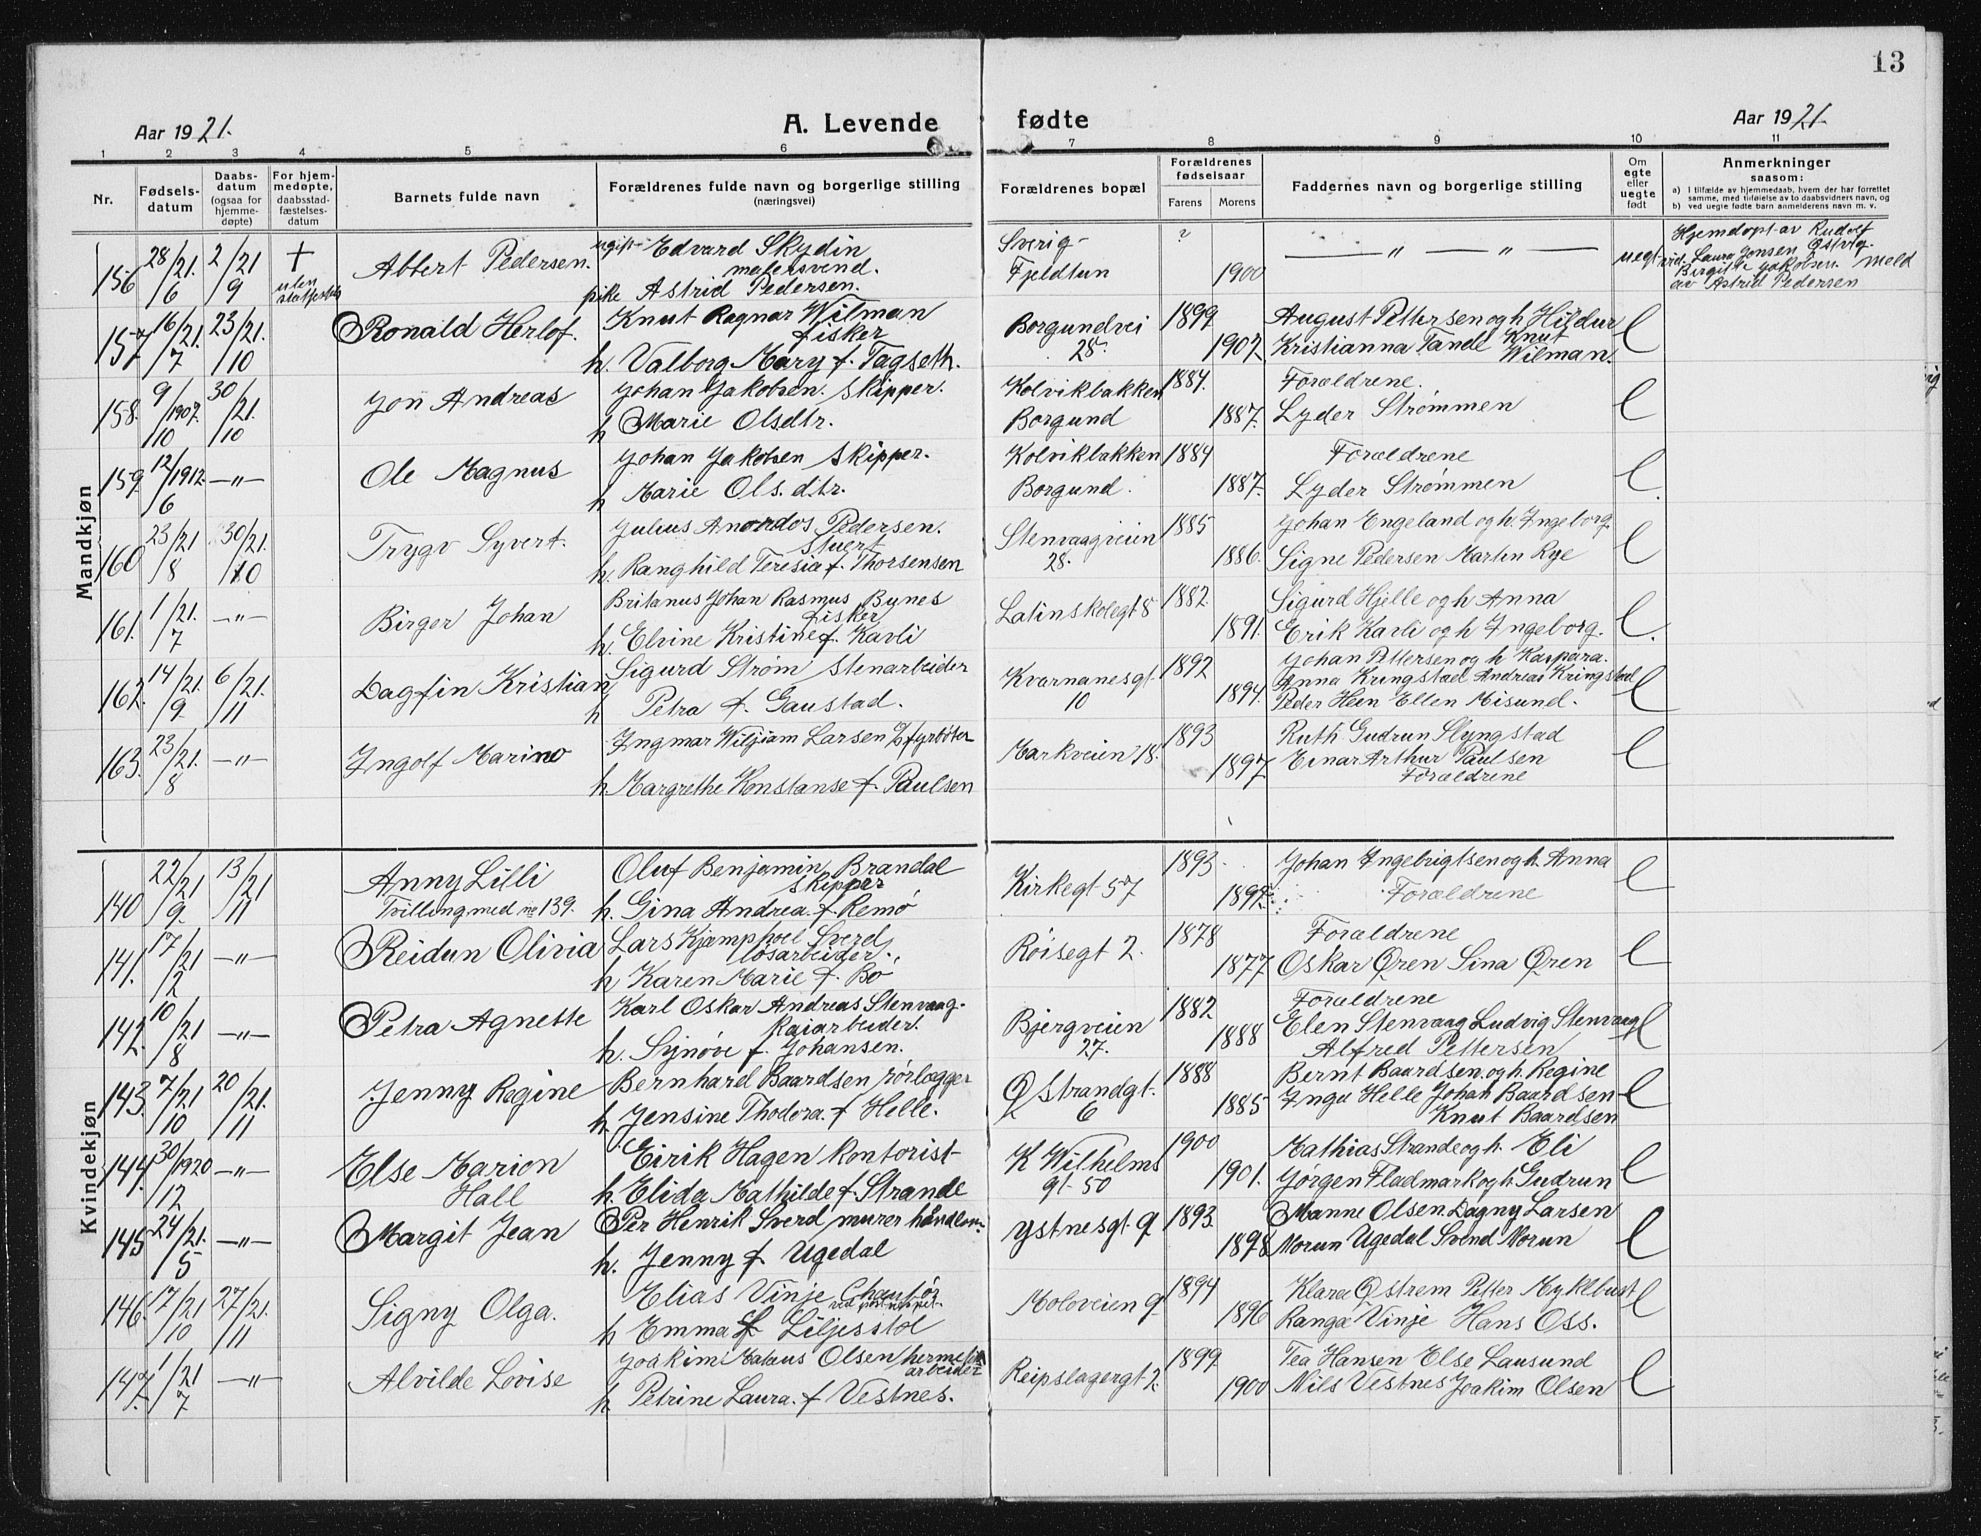 13
Aar 1921.
A. Levende
fødte
Aar 1921
1 2 3 4 5 6 7 8 9 10 11
Nr.
Fødsels-
datum
Daabs-
datum
(ogsaa for
hjemme-
døpte)
For hjem-
medøpte,
daabsstad-
fæstelses-
datum
Barnets fulde navn
Forældrenes fulde navn og borgerlige stilling
(næringsvei)
Forældrenes bopæl
Forældrenes
fødselsaar
Farens Morens
Faddernes navn og borgerlige stilling
Om
egte
eller
uegte
født
Anmerkninger
saasom:
a) i tilfælde av hjemmedaab, hvem der har forrettet
samme, med tilføielse av to daabsvidners navn, og
b) ved uegte fødte barn anmelderens navn m. v.
Mandkjøn
156 28/21. 6 2/21 9 + uten Abbert Pedersen. ugift Edvard Skydin
malersvend.
pike Astrid Pedersen.
Sverig
Fjeldtun ? 1900 — " — " — uegt
Hjemdøpt av Rudolf
vid. Laura Jonsen
Birgitte Jakobsen. meld
av Astrid Pedersen
157 16/21. 7 23/21. 10 Ronald Herlof. Knut Ragnar Wilman
fisker
h. Valborg Mary f. Tagseth.
Borgundvei
28. 1899 1902 August Pettersen og h Hildur
Kristianna Tande Knut
Wilman. E
158. 9/1907. 10 30/21. 10 Jon Andreas Johan Jakobsen. Skipper.
h Marie Olsdtr.
Kolvikbakken
Borgund 1884. 1887. Forældrene.
Lyder Strømmen E
159 12/1912. 6 — " — Ole Magnus Johan Jakobsen Skipper.
h Marie Ols.dtr.
Kolvikbakken
Borgund. 1884 1887. Forældrene
Lyder Strømmen E
160 23/21 8 30/21. 10 Trygv Syvert. Julius Anordos Pedersen.
Stuert
h. Ranghild Teresia f. Thorsensen
Stenvaagveien
28. 1885 1886. Johan Engeland og h. Ingeborg.
Signe Pedersen Martin Rye E
161. 1/21. 7 — " — Birger Johan Britanus Johan Rasmus Bynes
fisker
h. Elvine Kristine f. Karli
Latinskolegt 8 1882. 1891. Sigurd Hjelle og h Anna
Erik Karli og h Ingeborg. E
162. 14/21. 9 6/21. 11 Dagfin Kristian Sigurd Strøm Stenarbeider
h Petra f. Gaustad.
Kvarnanesgt.
10 1892 1894. Johan Pettersen og h Kaspara.
Anna Kringstad Andreas Kringstad
Peder Heen Ellen Misund. E
163. 23/21. 8 — " — Ingolf Marino Ingmar Wiljiam Larsen fyrbøter
h. Margrethe Konstanse f. Paulsen
Markveien 18. 1893 1897 Ruth Gudrun Slyngstad
Einar Arthur Paulsen
Forældrene E
Kvindekjøn
140 22/21 9 13/21 11 Anny Lilli
Tvilling med no 139. Oluf Benjamin Brandal
Skipper
h. Gina Andrea. f. Remø
Kirkegt 57 1893. 1892 Johan Ingebrigtsen og h. Anna
Forældrene E
141. 17/21 2 — " — Reidun Olivia Lars Kjæmphoel Sverd
løsarbeider.
h. Karen Marie f. Bø
Røisegt 2. 1878 1877 Forældrene
Oskar Øren Sina Øren E
142. 10/21 8 — " — Petra Agnette Karl Oskar Andreas Stenvaag.
Kaiarbeider.
h. Synøve f. Johansen.
Bjergveien
27. 1882 1888 Forældrene
Elen Stenvaag Ludvig Stenvaag
Alfred Pettersen E
143. 7/21 10 20/21. 11 Jenny Regine Bernhard Baardsen rørlægger
h. Jensine Thodora. f. Helle.
Østrandgt.
6 1888 1885 Bernt Baardsen og h. Regine
Inga Helle Johan Baardsen
Knut Baardsen E
144. 30/1920 12 — " — Else Marion
Hall Eirik Hagen kontorist
h. Elida Mathilde f. Strande
K Wilhelms
gt 50 1900 1901. Mathias Strande og h. Eli
Jørgen Fladmark og h Gudrun E
145 24/21. 5 — " — Margit Jean Per Henrik Sverd murer håndlan.
h. Jenny f. Ugedal
Ystnesgt 9 1893. 1898 Manne Olsen Dagny Larsen
Morun Ugedal Svend Morun E
146. 17/21 10 27/21. 11 Signy Olga. Elias Vinje Chaufør
h Emma f Liljesstol
Moloveien 9 1894 1896 Klara Østrem Petter Myklbust
Ranga Vinje Hans Oss. E
147. 1/21 7 — " — Alvilde Lovise Joakim Mataus Olsen hermetik
arbeider
h Petrine Laura. f Vestnes.
Reipslagergt 2. 1899 1900 Tea Hansen Else Lausund
Nils Vestnes Joakim Olsen E